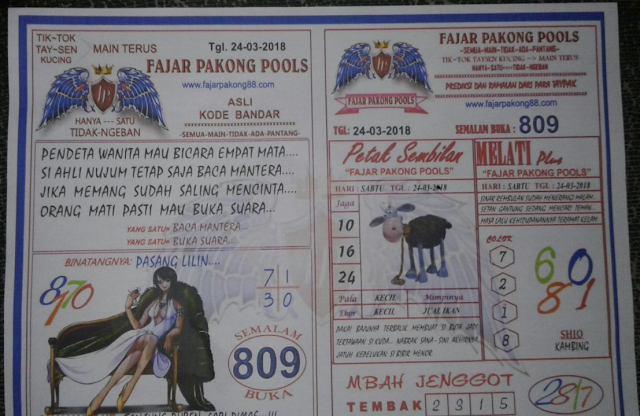 TIK-TOK
TAY-SEN
KUCING
MAIN TERUS
Tgl. 24-03-2018
FAJAR PAKONG POOLS
www.fajarpakong88.com
ASLI
KODE BANDAR
HANYA --- SATU
TIDAK-NGEBAN
-SEMUA-MAIN-TIDAK-ADA-PANTANG-
PENDETA WANITA MAU BICARA EMPAT MATA....
SI AHLI NUJUM TETAP SAJA BACA MANTERA....
JIKA MEMANG SUDAH SALING MENCINTA....
ORANG MATI PASTI MAU BUKA SUARA...
YANG SATU= BACA MANTERA...
YANG SATU= BUKA SUARA...
BINATANGNYA: PASANG LILIN....
8970
71
30
SEMALAM
809
BUKA
FAJAR PAKONG POOLS
-SEMUA-MAIN-TIDAK-ADA-PANTANG-
TIK-TOK TAYSEN KUCING --> MAIN TERUS
HANYA--SATU---TIDAK-NGEBAN
PREDIKSI DAN RAMALAN DARI PARA
www.fajarpakong88.com
FAJAR PAKONG POOLS
TGL: 24-03-2018
SEMALAM BUKA : 809
Petak Sembilan
"FAJAR PAKONG POOLS"
HARI : SABTU TGL : 24-03-2018
Jaga
10
16
24
Pala KECIL Mimpinya
Ekor KECIL JUALIKAN
MELATI Plus
"FAJAR PAKONG POOLS"
HARI : SABTU TGL : 24-03-2018
SINAR REMBULAN SUDAH MENERANGI MALAM
SETAN GANTUNG SEDANG MENCARI TEMAN
MASA LALU KEHIDUPANNYA TERAMAT KELAM
COLOK
7
2
1
8
60
81
SHIO
KAMBING
MBAH JENGGOT
TEMBAK 2315
2817